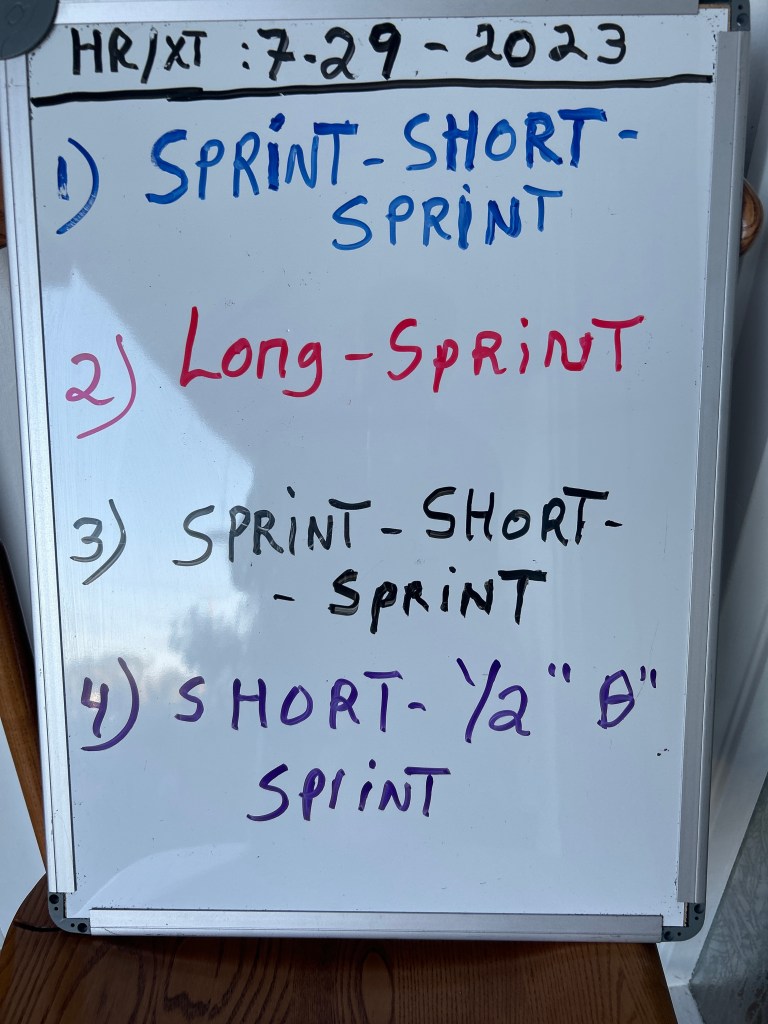 HR/XT : 7-29-2023
1) SPRINT-SHORT-
SPRINT
2) Long-SPRINT
3) SPRINT-SHORT-
- SPRINT
4) SHORT- 1/2 "B"
SPRINT